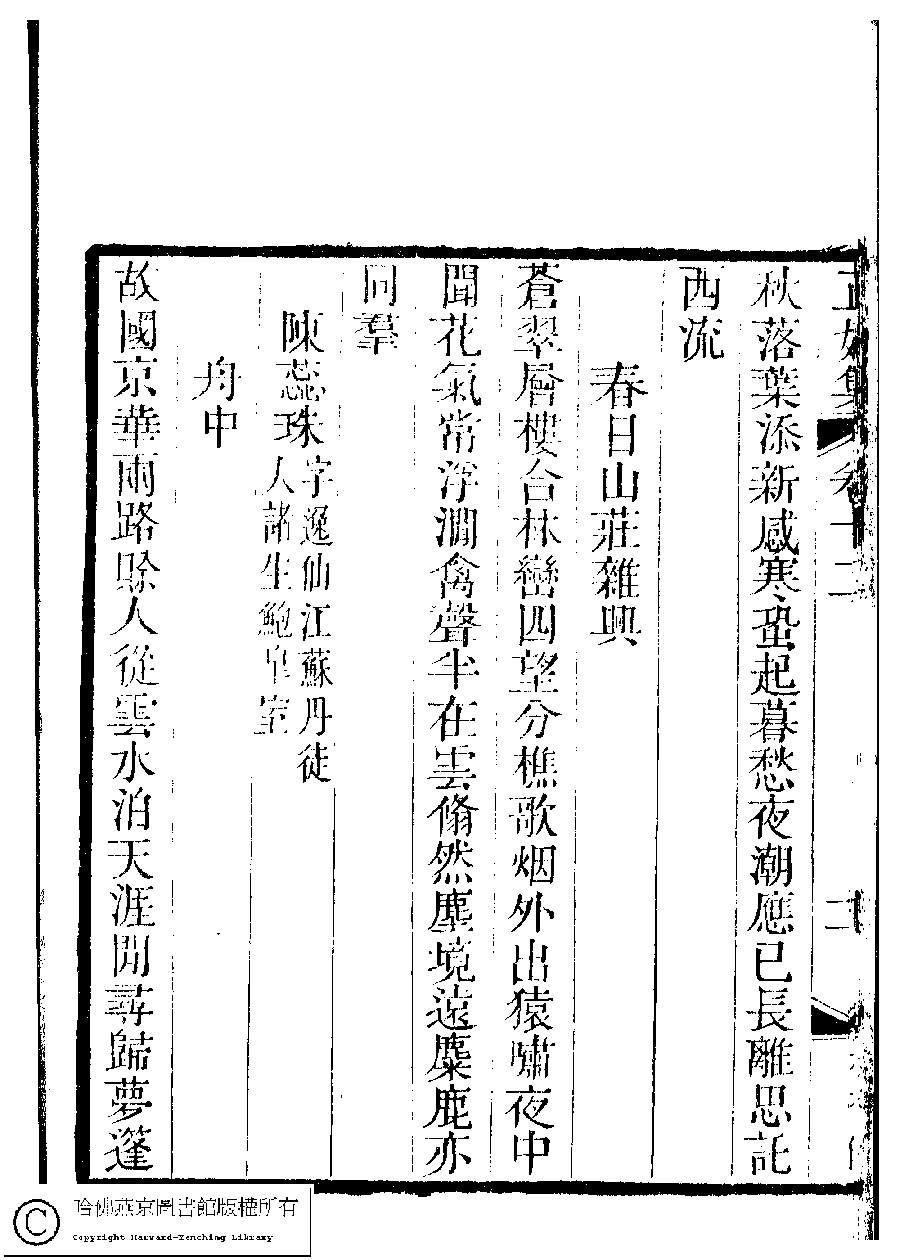 秋落葉添新感寒蛩起暮愁夜潮應已長離思託
西流
春日山莊雜興
蒼翠層樓合林巒四望分樵歌烟外出猿嘯夜中
聞花氣常浮澗禽聲半在雲翛然塵境遠麋鹿亦
同羣
陳蕊珠字逸仙江蘇丹徒
人諸生鮑皐室
舟中
故國京華兩路賒人從雲水泊天涯閒尋歸夢蓬
十二
二
哈佛燕京圖書館版權所有
Copyright Harvard-Yenching Library